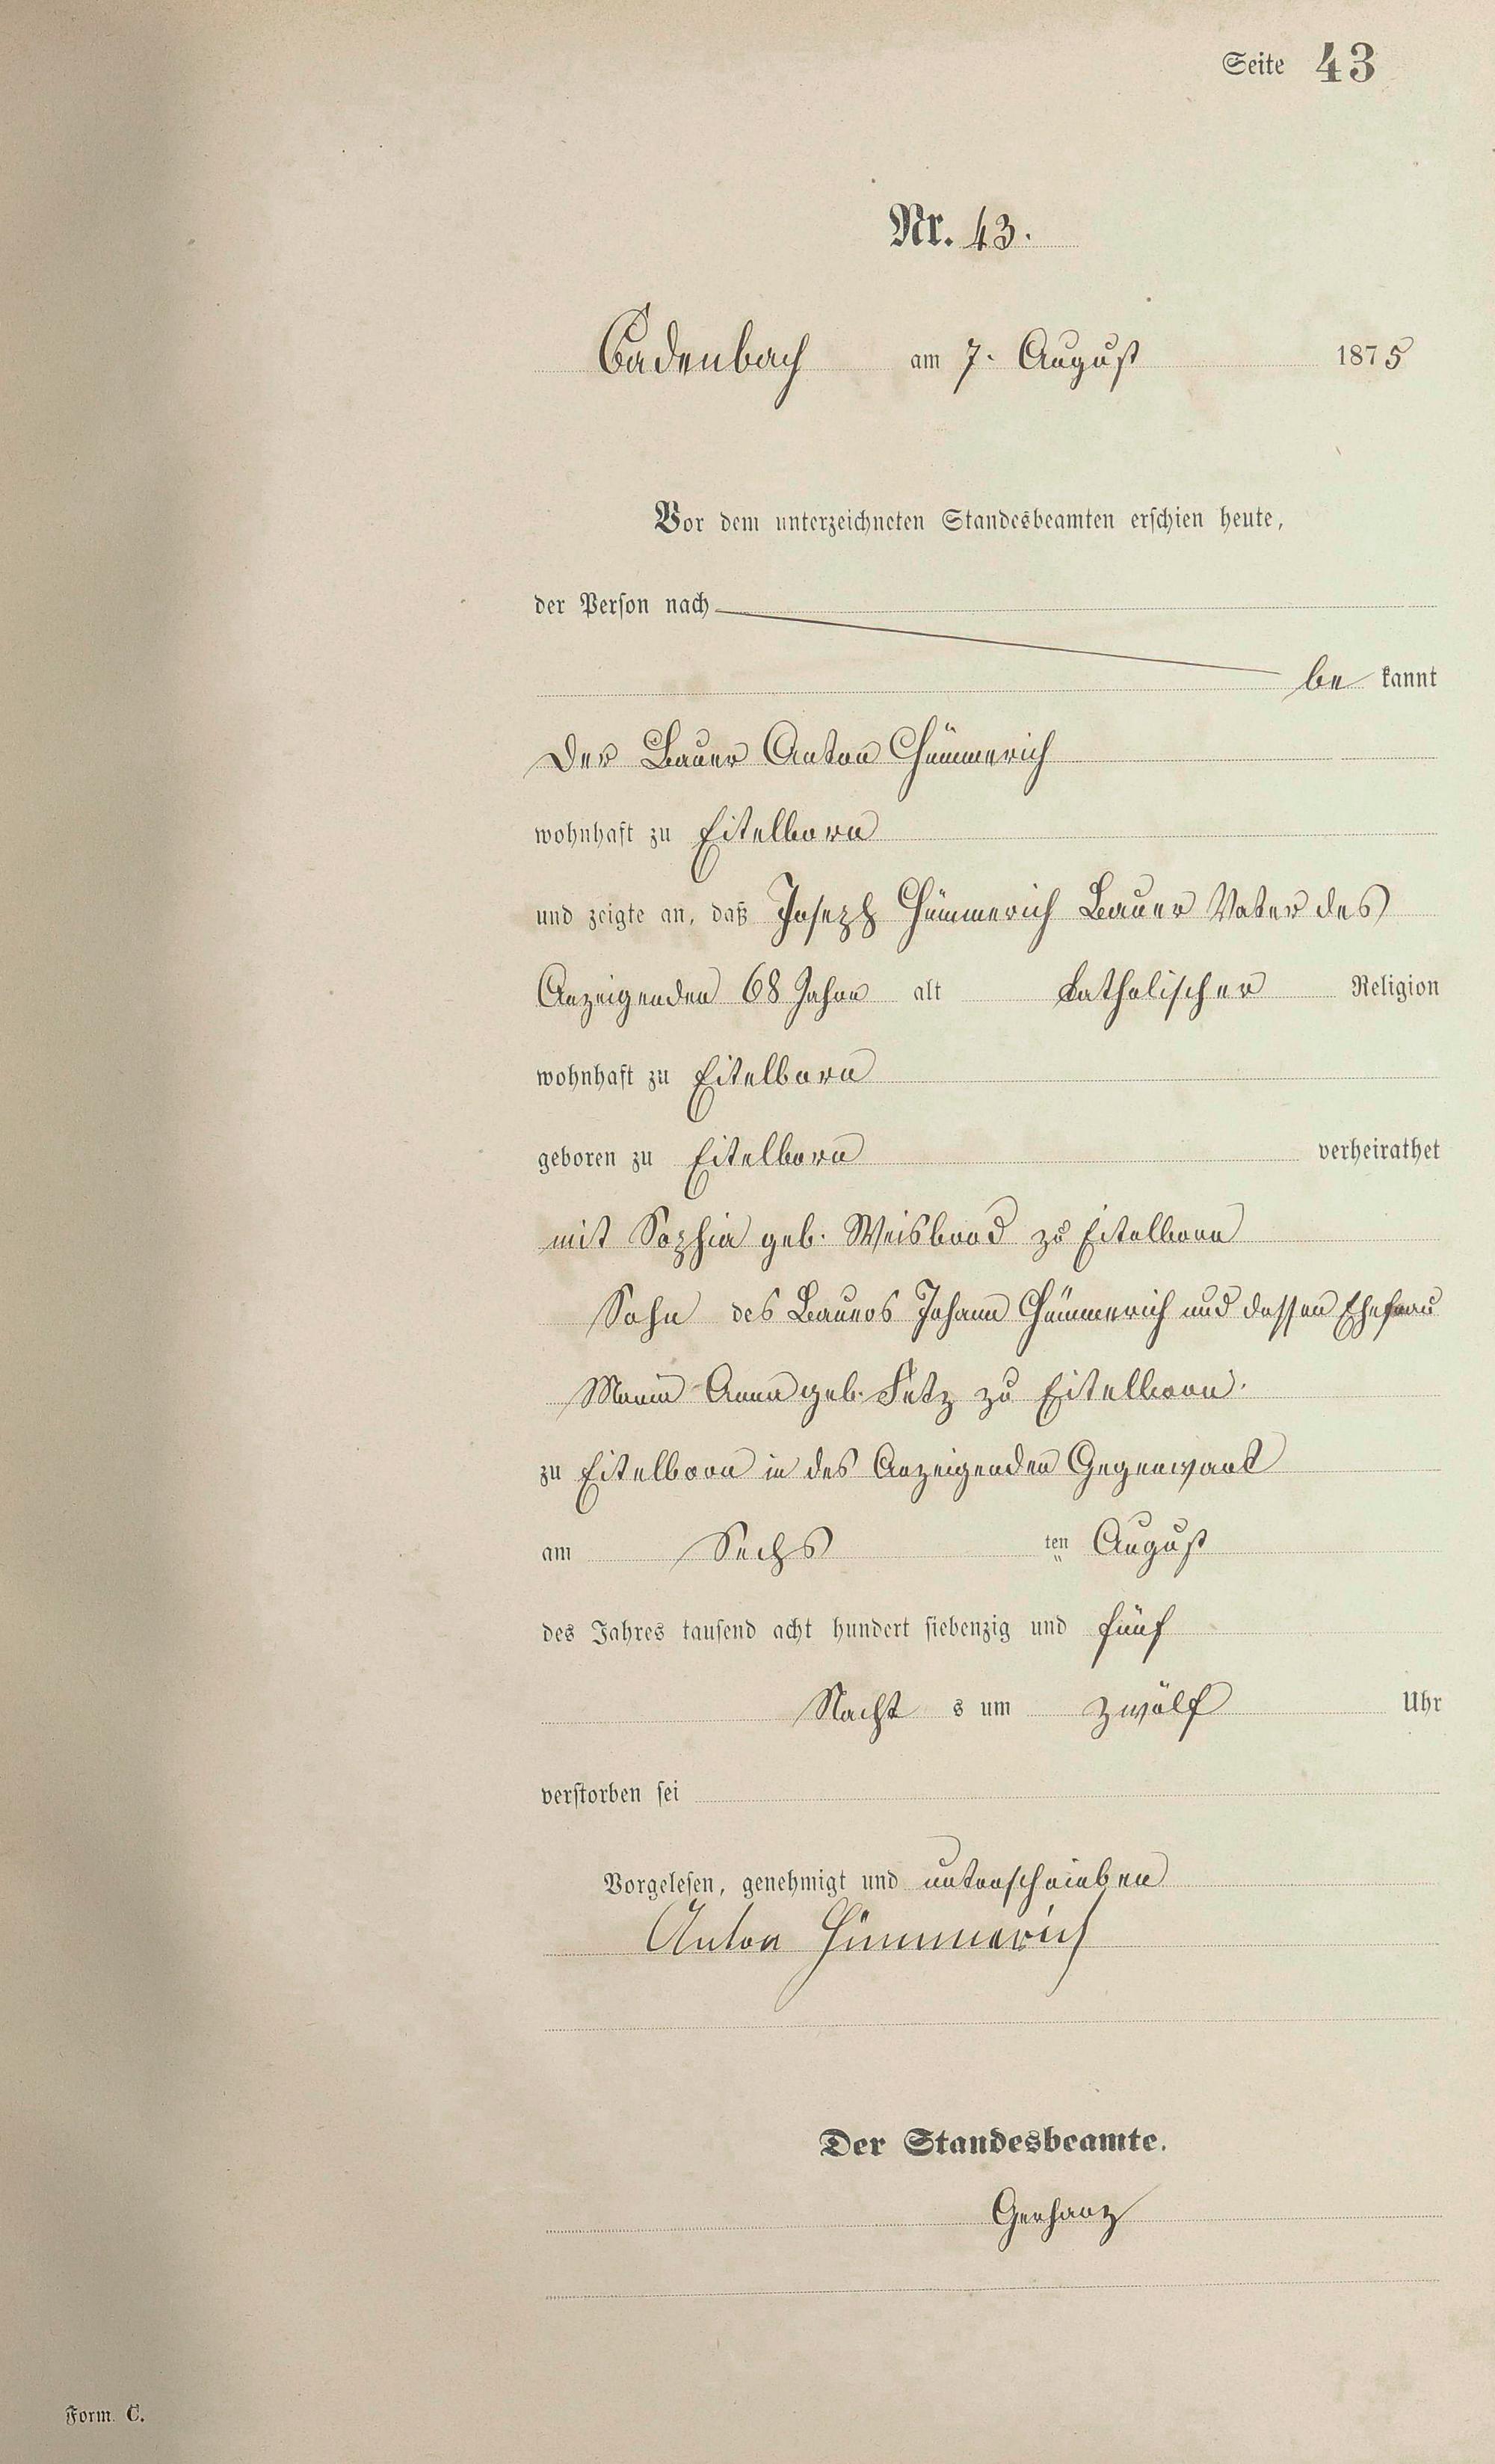 Seite 43
Nr. 43.
Cadenbach am 7. August 1875
Vor dem unterzeichneten Standesbeamten erschien heute,
der Person nach
be kannt
Der Bauer Anton Hümmerich
wohnhaft zu Eitelborn
und zeigte an, daß Joseph Hümmerich Bauer Vater des
Anzeigenden 68 Jahre alt katholischer Religion
wohnhaft zu Eitelborn
geboren zu Eitelborn verheirathet
mit Sophia geb. Weisbrod zu Eitelborn
Sohn des Bauers Johann Hümmerich und dessen Ehefrau
Maria Anna geb. Fetz zu Eitelborn.
zu Eitelborn in des Anzeigenden Gegenwart
am Sechs ten August
des Jahres tausend acht hundert siebenzig und fünf
Nacht s um zwölf Uhr
verstorben sei
Vorgelesen, genehmigt und unterschrieben
Anton Hümmerich
Der Standesbeamte.
Gerharz
Form. C.